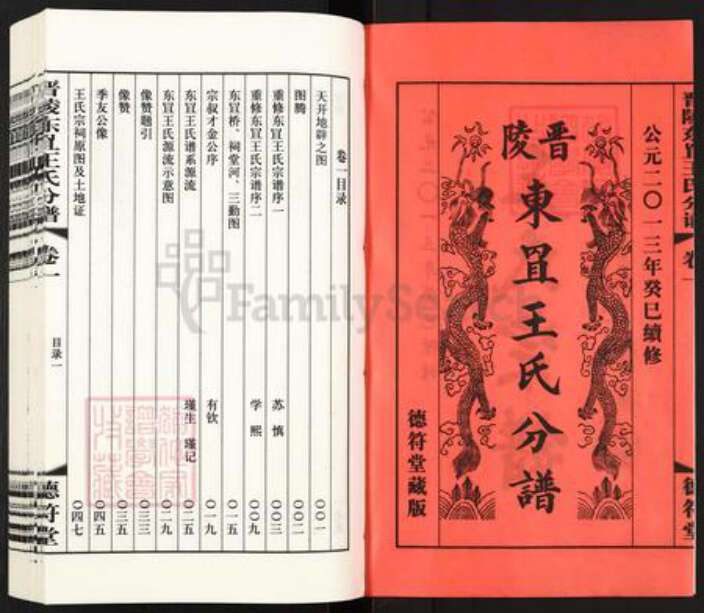 晋陵东罝王氏分谱
卷一
德符堂
公元二〇一三年癸巳續修
晋陵
東罝王氏分譜
德符堂藏版
卷一目录
天开地辟之图 〇〇一
图腾 〇〇二
重修东罝王氏宗谱序一 苏慎 〇〇三
重修东罝王氏宗谱序二 学熙 〇〇九
东罝桥、祠堂河、三勤图 〇一五
宗叔才金公序 有钦 〇一九
东罝王氏谱系源流 瑾生 瑾记 〇二五
东罝王氏源流示意图 〇二九
像赞题引 〇三三
像赞 〇三五
季友公像 〇四五
王氏宗祠原图及土地证 〇四七
晋陵东罝王氏分谱
卷一
目录一
德符堂
FamilySearch